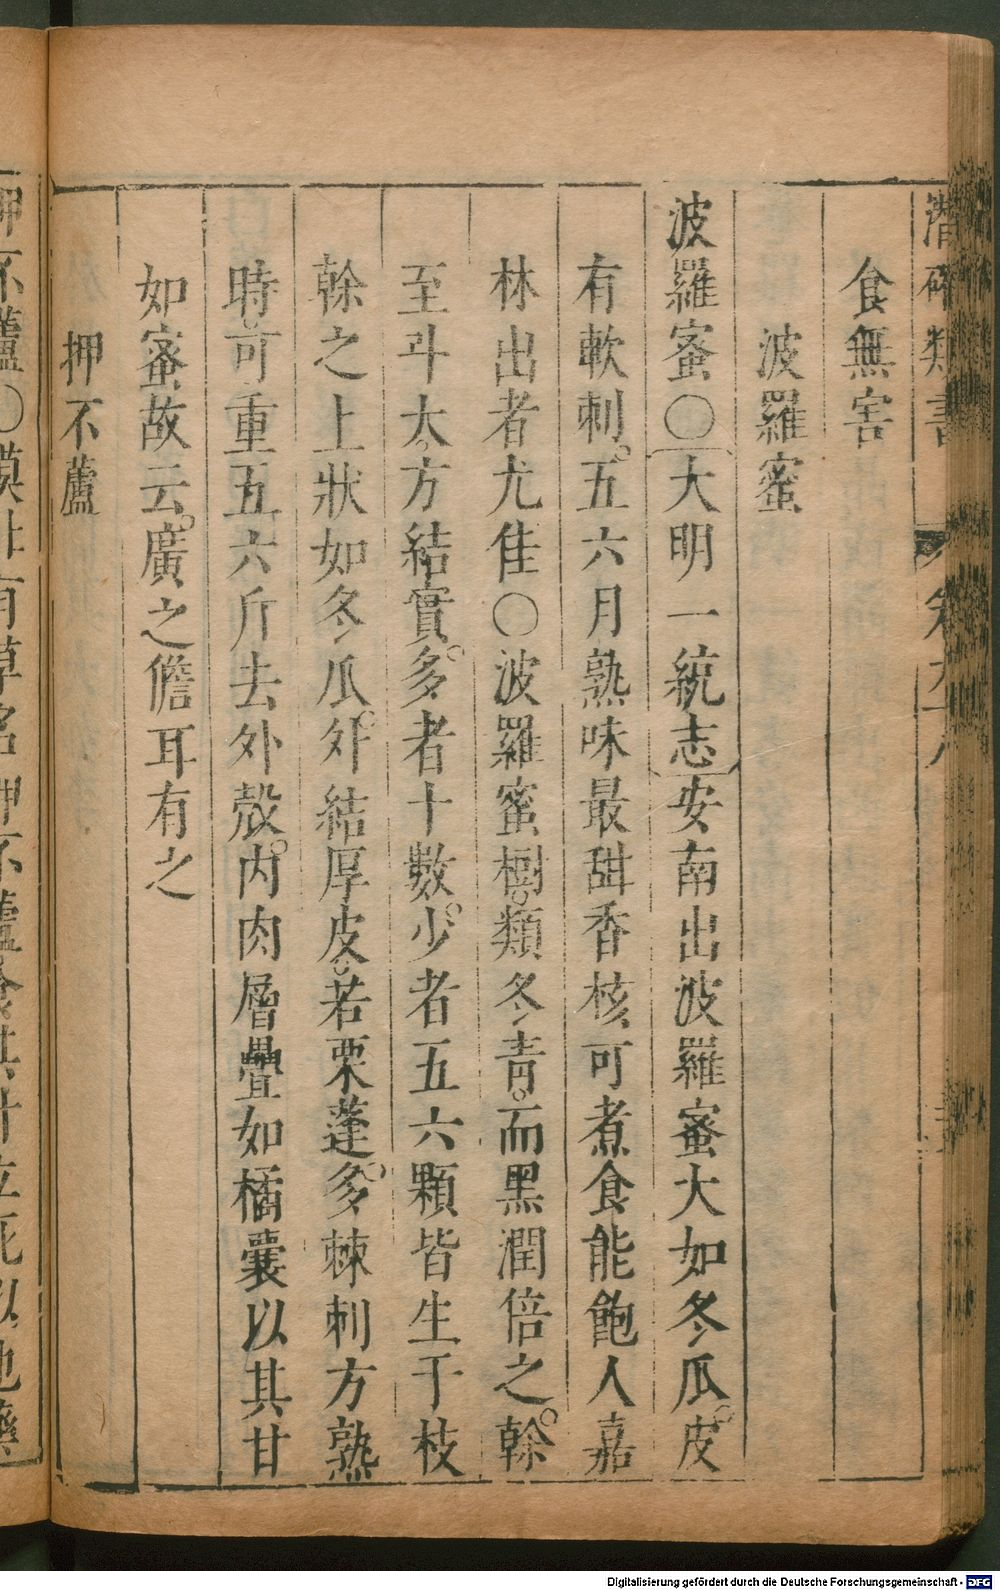 潛確類書 卷九十八
食無害
波羅蜜
波羅蜜〇大明一統志安南出波羅蜜大如冬瓜皮
有軟刺五六月熟味最甜香核可煮食能飽人嘉
林出者尤佳〇波羅蜜樹類冬青而黑潤倍之榦
至斗大方結實多者十數少者五六顆皆生于枝
榦之上狀如冬瓜外結厚皮若栗蓬多棘刺方熟
時可重五六斤去外殼内肉層疊如橘囊以其甘
如蜜故云廣之儋耳有之
押不蘆
押不蘆〇漠北有草名押不蘆食其汁立死以他藥
Digitalisierung gefördert durch die Deutsche Forschungsgemeinschaft - DFG